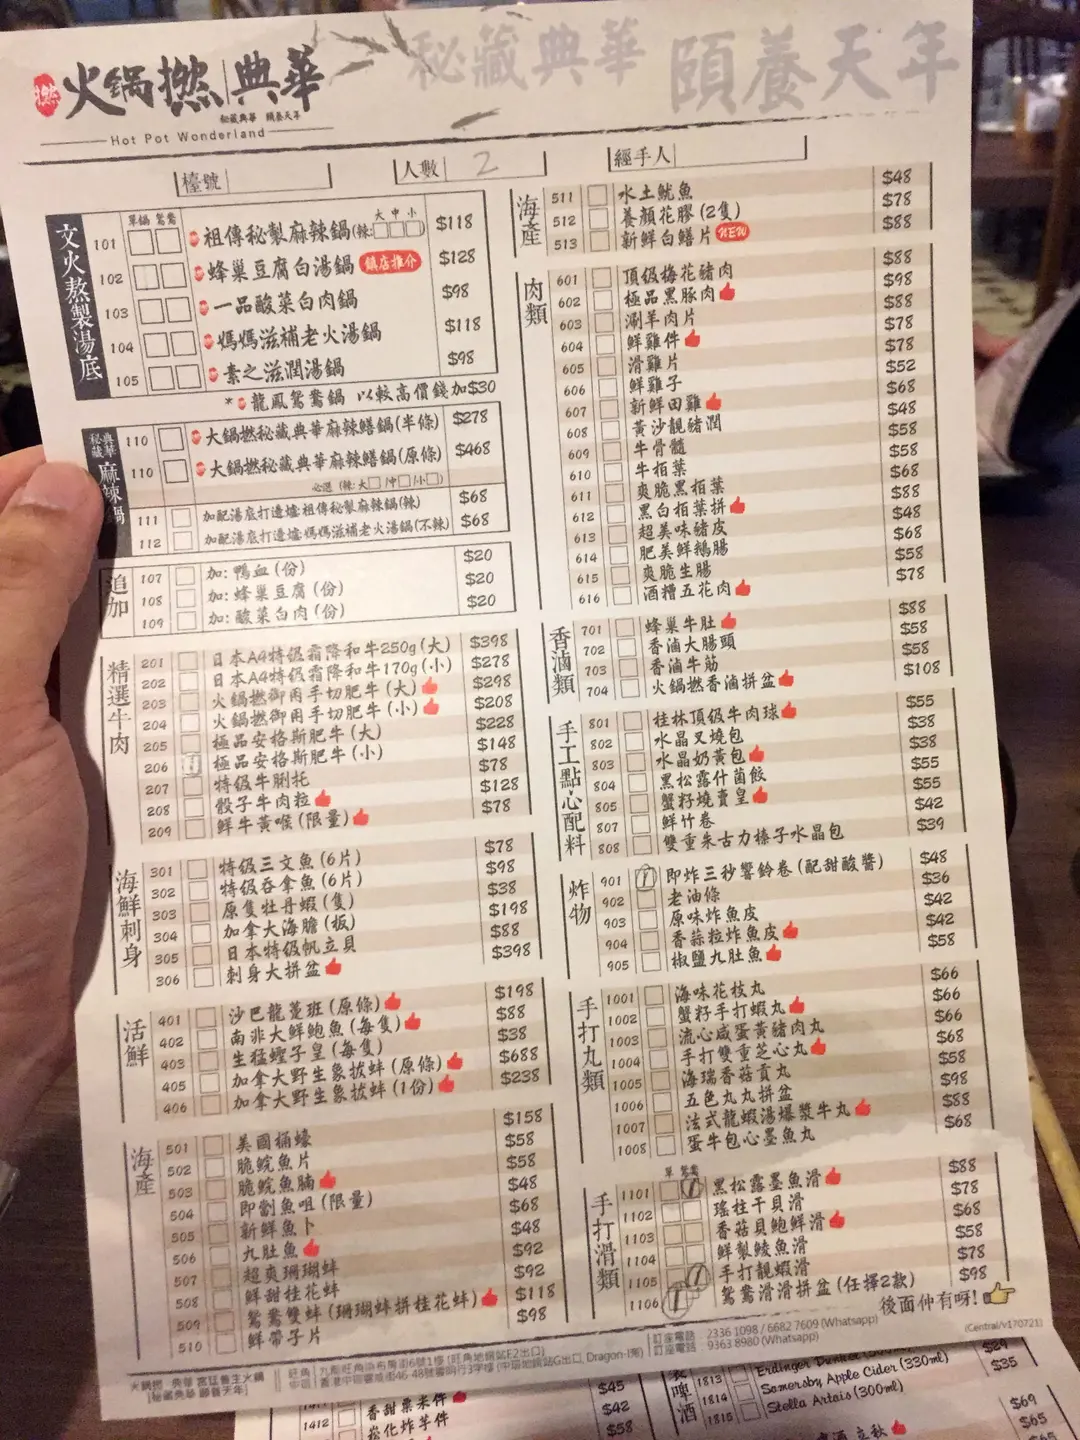 秘藏典華 頤養天年
撚 火鍋撚 典華
秘藏典華 頤養天年
Hot Pot Wonderland
檯號
人數 2
經手人
文火熬製湯底
單鍋 鴛鴦
大 中 小
101 祖傳秘製麻辣鍋(辣: $118
102 蜂巢豆腐白湯鍋 鎮店推介 $128
103 一品酸菜白肉鍋 $98
104 媽媽滋補老火湯鍋 $118
105 素之滋潤湯鍋 $98
* 龍鳳鴛鴦鍋 以較高價錢加$30
典華秘藏 麻辣鍋
110 大鍋撚秘藏典華麻辣鱔鍋(半條) $278
110 大鍋撚秘藏典華麻辣鱔鍋(原條) $468
必選 (辣:大 /中 /小 )
111 加配湯底打邊爐:祖傳秘製麻辣鍋(辣) $68
112 加配湯底打邊爐:媽媽滋補老火湯鍋(不辣) $68
追加
107 加: 鴨血(份) $20
108 加: 蜂巢豆腐(份) $20
109 加: 酸菜白肉(份) $20
精選牛肉
201 日本A4特級霜降和牛250g(大) $398
202 日本A4特級霜降和牛170g(小) $278
203 火鍋撚御用手切肥牛(大) $298
204 火鍋撚御用手切肥牛(小) $208
205 極品安格斯肥牛(大) $228
206 極品安格斯肥牛(小) $148
207 特級牛脷托 $78
208 骰子牛肉粒 $128
209 鮮牛黃喉(限量) $78
海鮮刺身
301 特級三文魚(6片) $78
302 特級吞拿魚(6片) $98
303 原隻牡丹蝦(隻) $38
304 加拿大海膽(板) $198
305 日本特級帆立貝 $88
306 刺身大拼盆 $398
活鮮
401 沙巴龍躉班(原條) $198
402 南非大鮮鮑魚(每隻) $88
403 生猛蟶子皇(每隻) $38
405 加拿大野生象拔蚌(原條) $688
406 加拿大野生象拔蚌(1份) $238
海產
501 美國桶蠔 $158
502 脆鯇魚片 $58
503 脆鯇魚腩 $58
504 即劏魚咀(限量) $48
505 新鮮魚卜 $68
506 九肚魚 $48
507 超爽珊瑚蚌 $92
508 鮮甜桂花蚌 $92
509 鴛鴦雙蚌(珊瑚蚌拼桂花蚌) $118
510 鮮帶子片 $98
海產
511 水土魷魚 $48
512 養顏花膠(2隻) $78
513 新鮮白鱔片 NEW $88
肉類
601 頂級梅花豬肉 $88
602 極品黑豚肉 $98
603 涮羊肉片 $88
604 鮮雞件 $78
605 滑雞片 $78
606 鮮雞子 $52
607 新鮮田雞 $68
608 黃沙靚豬潤 $48
609 牛骨髓 $58
610 牛栢葉 $58
611 爽脆黑栢葉 $68
612 黑白栢葉拼 $88
613 超美味豬皮 $48
614 肥美鮮鵝腸 $68
615 爽脆生腸 $58
616 酒糟五花肉 $78
香滷類
701 蜂巢牛肚 $88
702 香滷大腸頭 $58
703 香滷牛筋 $58
704 火鍋撚香滷拼盆 $108
手工點心配料
801 桂林頂級牛肉球 $55
802 水晶叉燒包 $38
803 水晶奶黃包 $38
804 黑松露什菌餃 $55
805 蟹籽燒賣皇 $55
807 鮮竹卷 $42
808 雙重朱古力榛子水晶包 $39
炸物
901 1 即炸三秒響鈴卷(配甜酸醬) $48
902 老油條 $36
903 原味炸魚皮 $42
904 香蒜粒炸魚皮 $42
905 椒鹽九肚魚 $58
手打丸類
1001 海味花枝丸 $66
1002 蟹籽手打蝦丸 $66
1003 流心咸蛋黃豬肉丸 $66
1004 手打雙重芝心丸 $68
1005 海瑞香菇貢丸 $58
1006 五色丸丸拼盆 $98
1007 法式龍蝦湯爆漿牛丸 $88
1008 蛋牛包心墨魚丸 $68
手打滑類
單 鴛鴦
1101 1 黑松露墨魚滑 $88
1102 瑤柱干貝滑 $78
1103 香菇貝鮑鮮滑 $68
1104 鮮製鯪魚滑 $58
1105 1 手打靚蝦滑 $78
1106 1 鴛鴦滑滑拼盆(任擇2款) $98
後面仲有呀!
(Central/v170721)
旺角 九龍旺角染布房街6號1樓 (旺角地鐵站E2出口)
訂座電話 2336 1098 / 6682 7609 (Whatsapp)
訂座電話 9363 8980 (Whatsapp)
1412 香甜粟米件 $45
崧化炸芋件 $42
$58
啤酒
1813
1814 Somersby Apple Cider (330ml) $29
1815 Stella Artois (300ml) $35
$69
$65